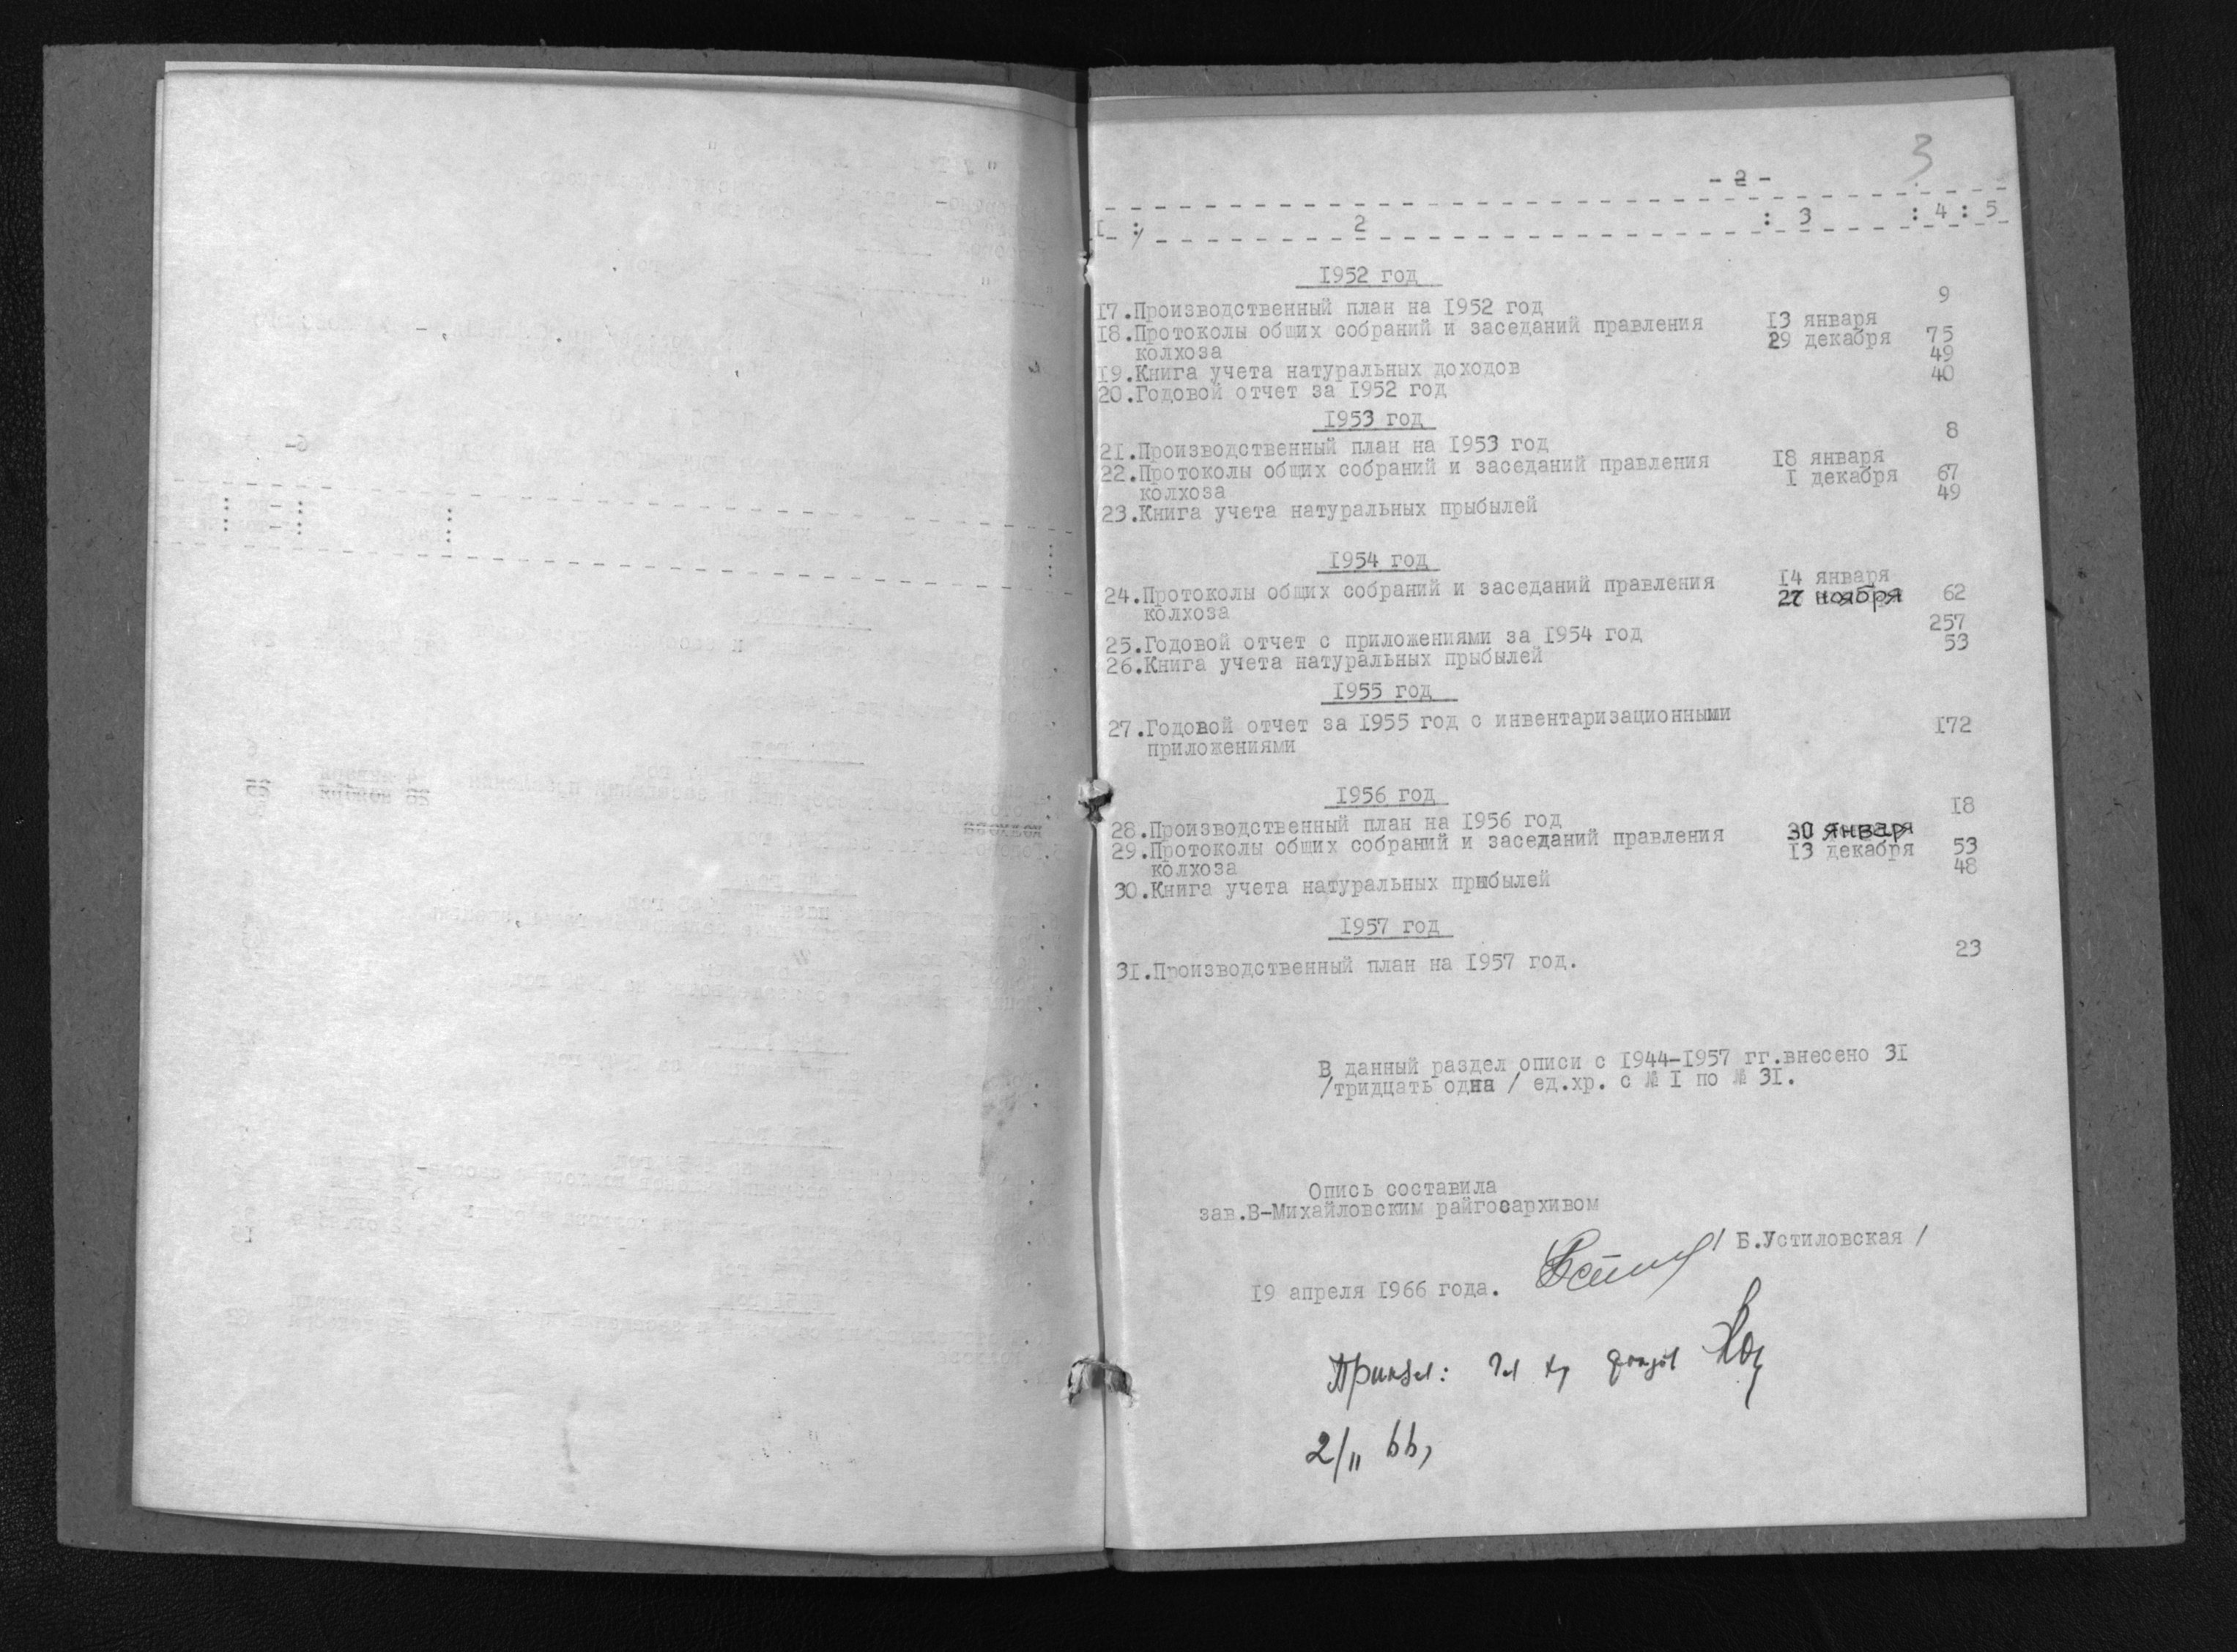 3
- 2 -
I : 2 : 3 : 4 : 5
1952 год
17.Производственный план на 1952 год 9
18.Протоколы общих собраний и заседаний правления 13 января
колхоза 29 декабря 75
19.Книга учета натуральных доходов 49
20.Годовой отчет за 1952 год 40
1953 год
21.Производственный план на 1953 год 8
22.Протоколы общих собраний и заседаний правления 18 января
колхоза I декабря 67
23.Книга учета натуральных прыбылей 49
1954 год
24.Протоколы общих собраний и заседаний правления 14 января
колхоза 27 ноября 62
25.Годовой отчет с приложениями за 1954 год 257
26.Книга учета натуральных прыбылей 53
1955 год
27.Годовой отчет за 1955 год с инвентаризационными
приложениями 172
1956 год
28.Производственный план на 1956 год 18
29.Протоколы общих собраний и заседаний правления 30 января
колхоза 13 декабря 53
30.Книга учета натуральных прибылей 48
1957 год
31.Производственный план на 1957 год. 23
В данный раздел описи с 1944-1957 гг.внесено 31
/тридцать одна / ед.хр. с № I по № 31.
Опись составила
зав.В-Михайловским райгосархивом
/ Б.Устиловская /
19 апреля 1966 года.
2/II 66,